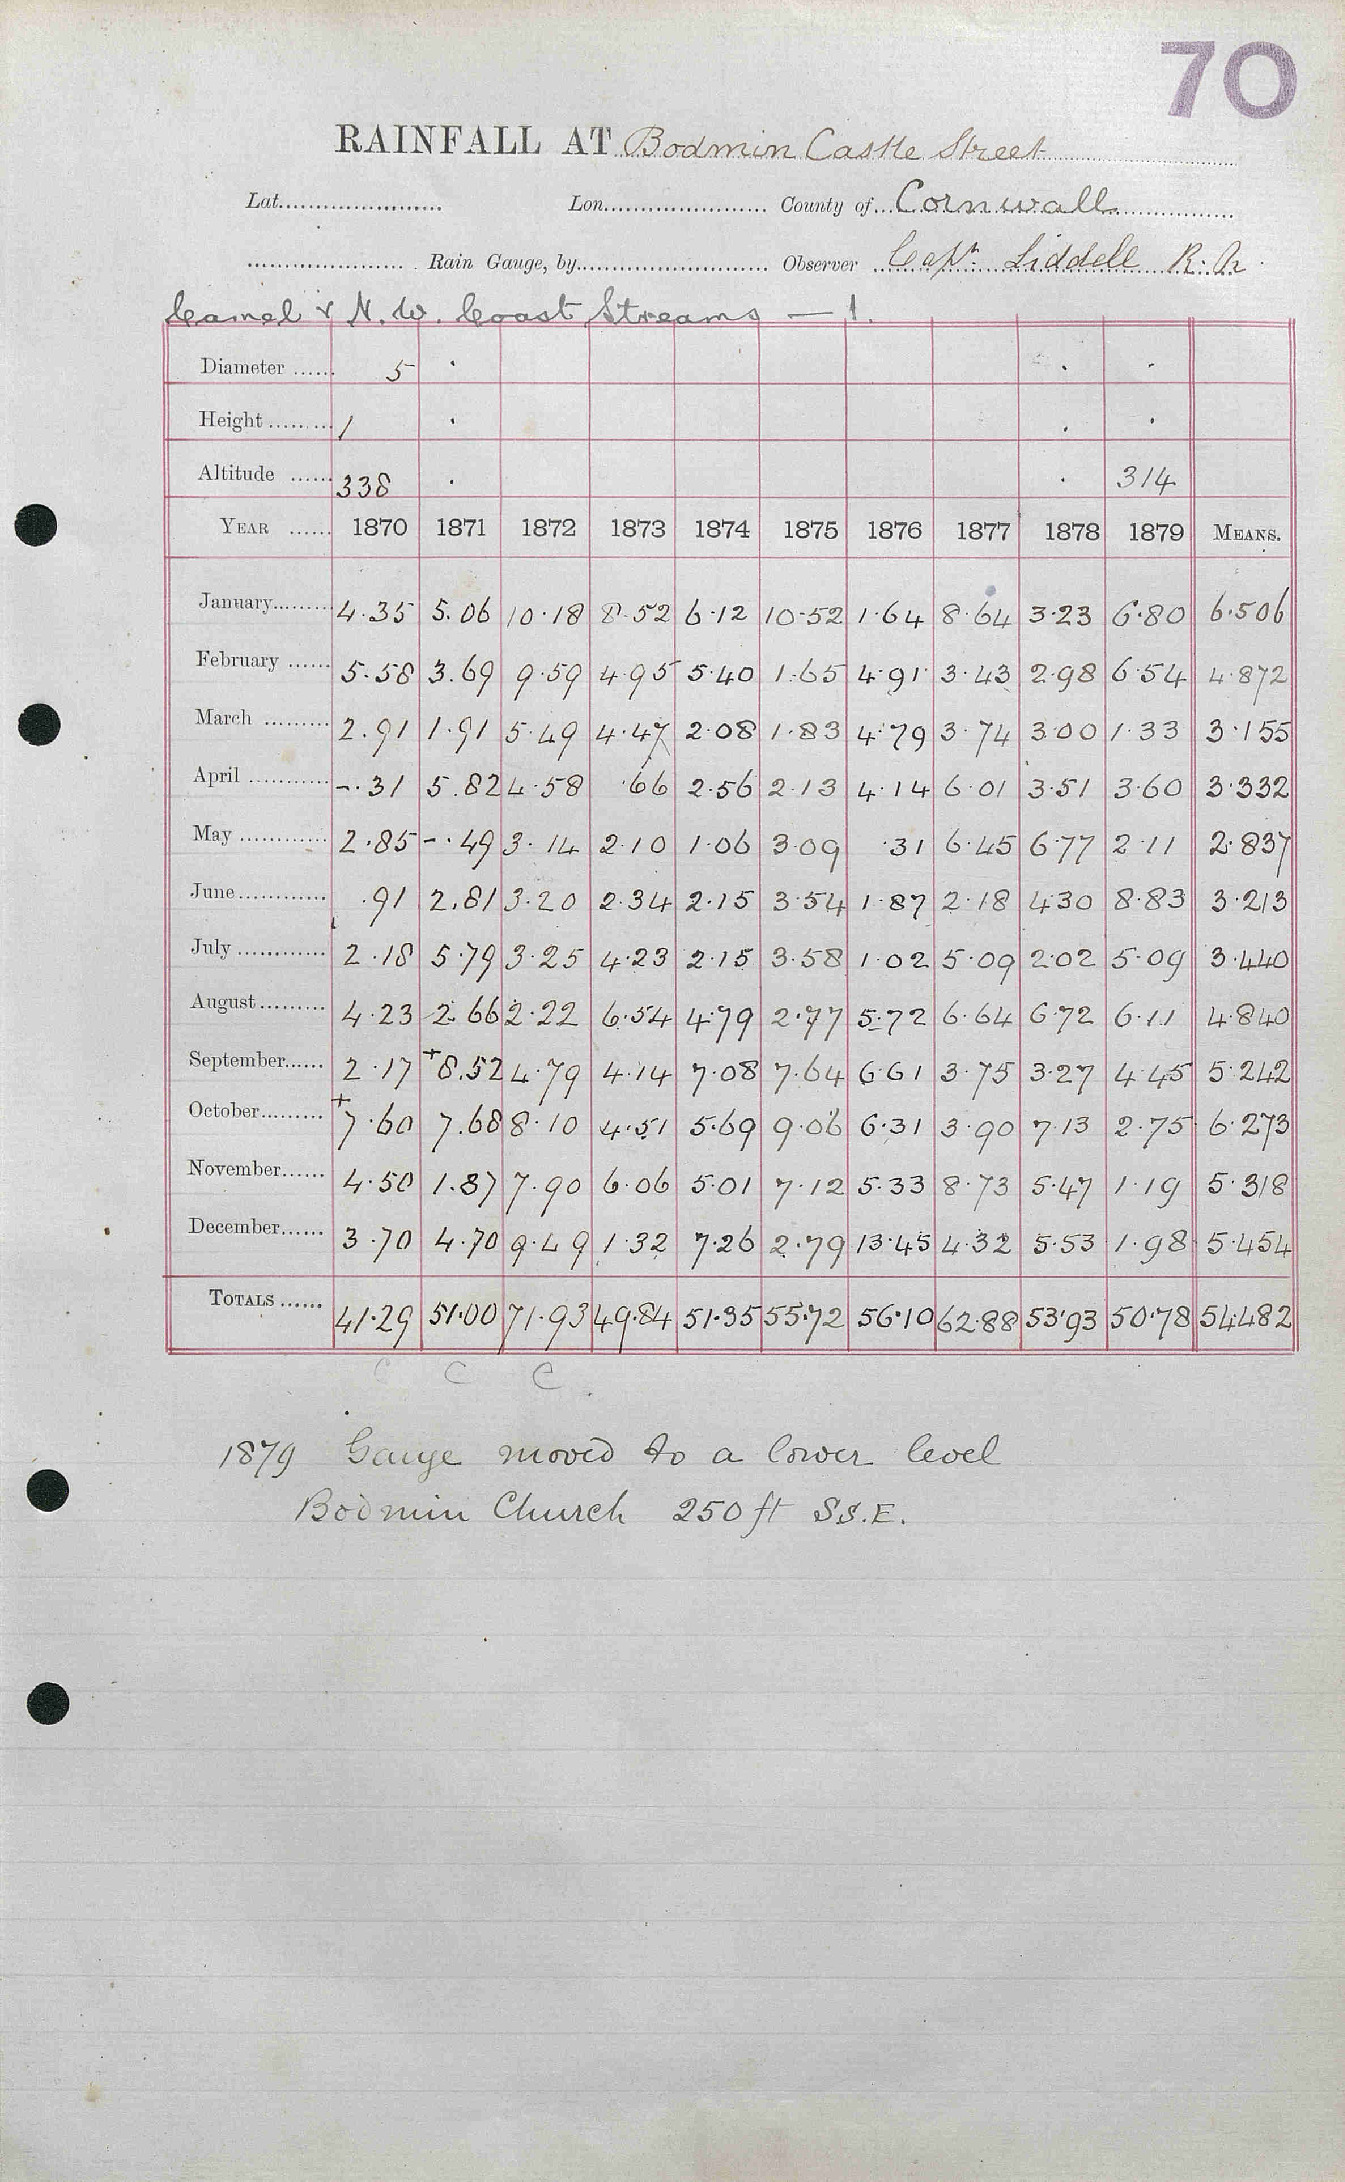 70
RAINFALL AT Bodmin Castle Street
Lat. Lon. County of Cornwall
Rain Gauge, by Observer Capt. Liddell R. N.
Camel & N. W. Coast Streams — 1.
Diameter 5
Height 1
Altitude 338 314
YEAR 1870 1871 1872 1873 1874 1875 1876 1877 1878 1879 MEANS.
January 4.35 5.06 10.18 8.52 6.12 10.52 1.64 8.64 3.23 6.80 6.506
February 5.58 3.69 9.59 4.95 5.40 1.65 4.91 3.43 2.98 6.54 4.872
March 2.91 1.91 5.49 4.47 2.08 1.83 4.79 3.74 3.00 1.33 3.155
April -.31 5.82 4.58 .66 2.56 2.13 4.14 6.01 3.51 3.60 3.332
May 2.85 -.49 3.14 2.10 1.06 3.09 .31 6.45 6.77 2.11 2.837
June .91 2.81 3.20 2.34 2.15 3.54 1.87 2.18 4.30 8.83 3.213
July 2.18 5.79 3.25 4.23 2.15 3.58 1.02 5.09 2.02 5.09 3.440
August 4.23 2.66 2.22 6.54 4.79 2.77 5.72 6.64 6.72 6.11 4.840
September 2.17 +8.52 4.79 4.14 7.08 7.64 6.61 3.75 3.27 4.45 5.242
October +7.60 7.68 8.10 4.51 5.69 9.06 6.31 3.90 7.13 2.75 6.273
November 4.50 1.87 7.90 6.06 5.01 7.12 5.33 8.73 5.47 1.19 5.318
December 3.70 4.70 9.49 1.32 7.26 2.79 13.45 4.32 5.53 1.98 5.454
TOTALS 41.29 51.00 71.93 49.84 51.35 55.72 56.10 62.88 53.93 50.78 54.482
C C C
1879 Gauge moved to a lower level
Bodmin Church 250 ft S.S.E.